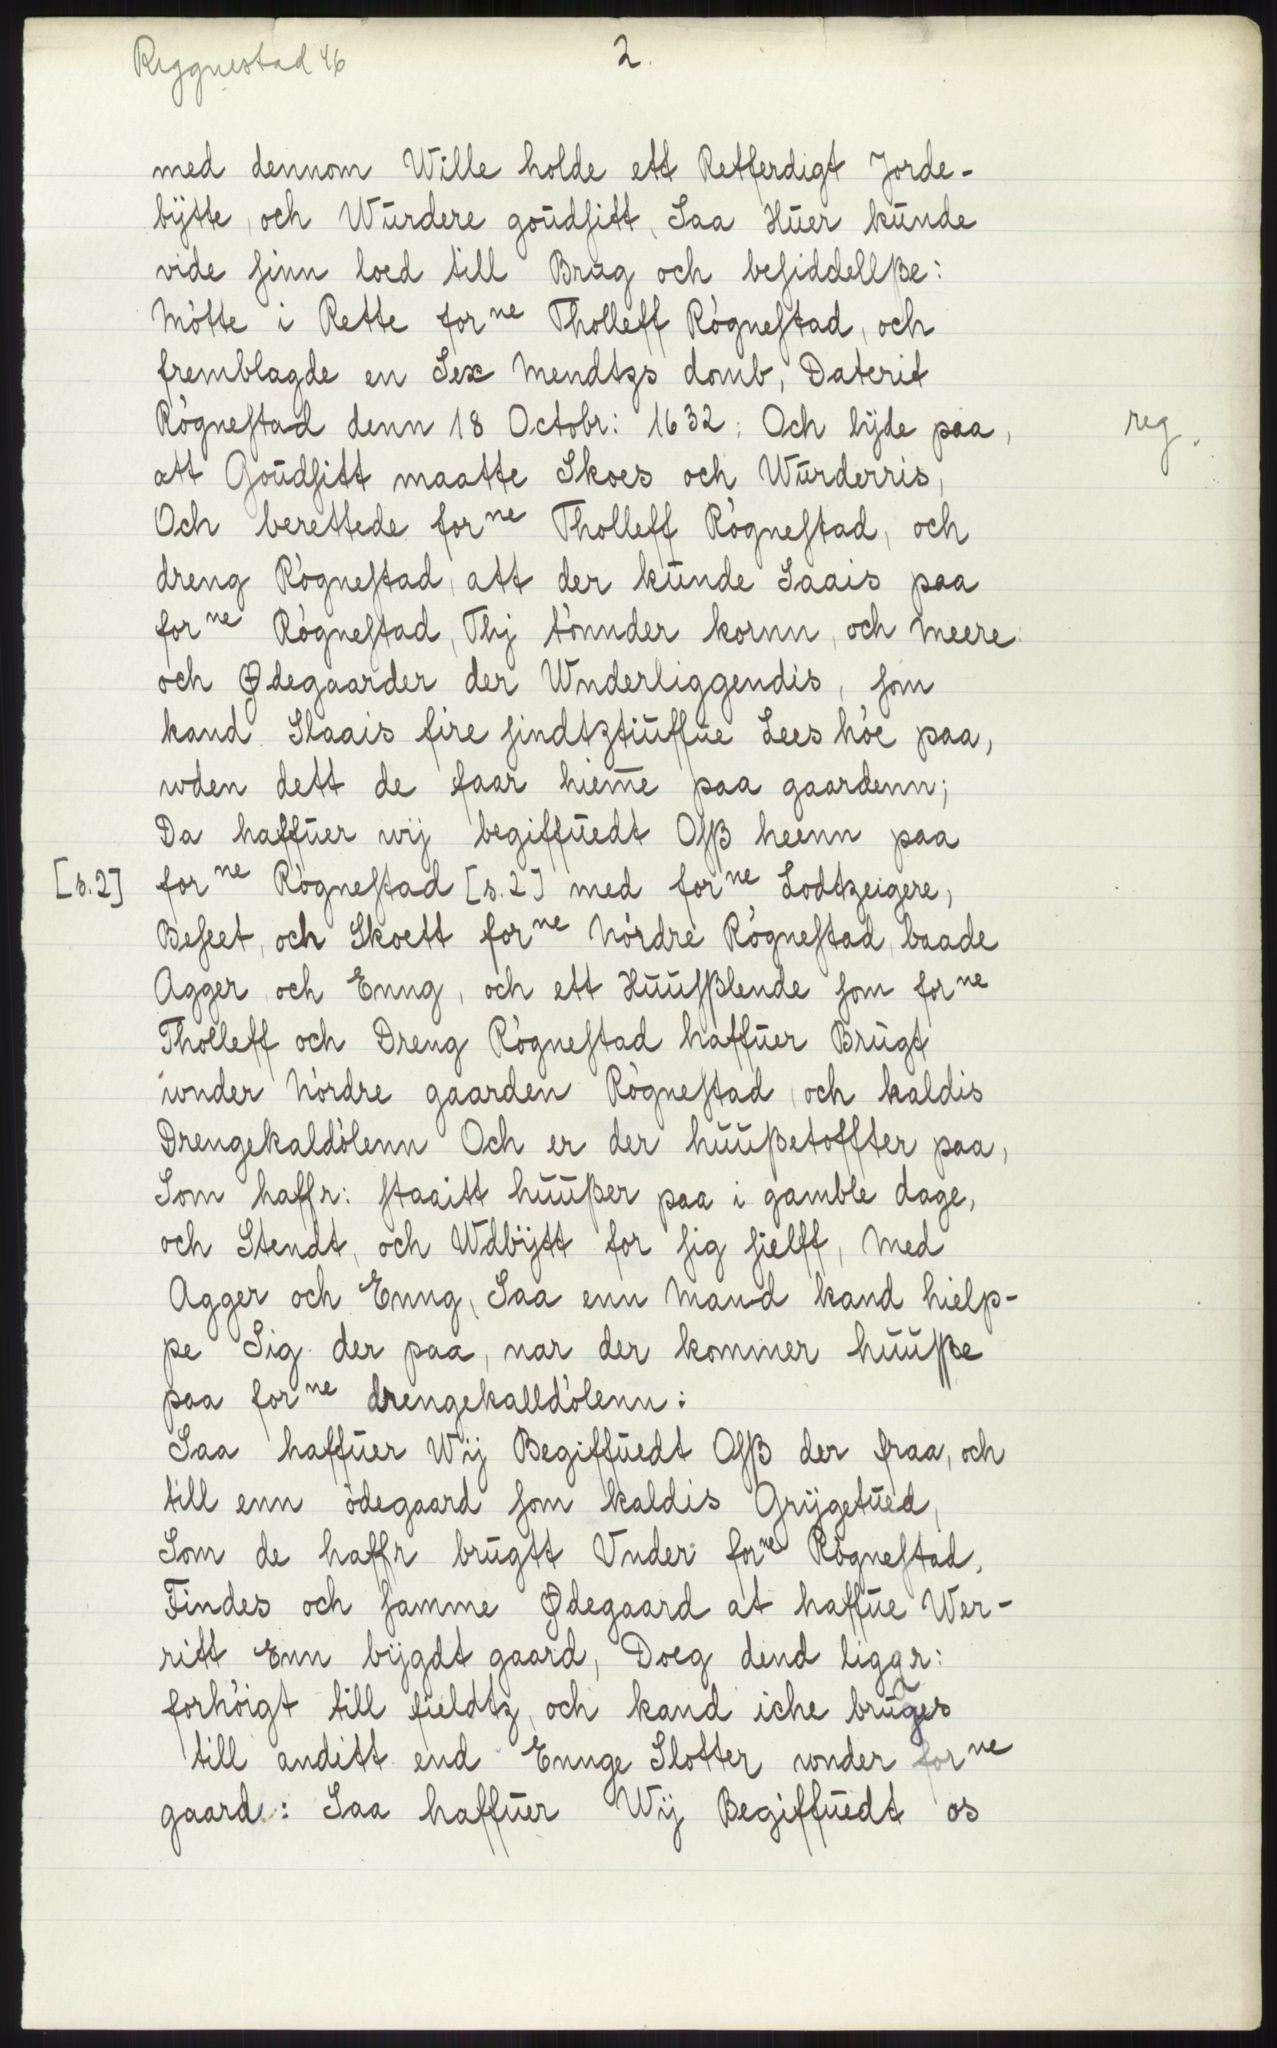 Ryggnestad 46
2.
med dennom Wille holde ett Retferdigt Jorde-
bÿtte, och Wurdere goudsitt, Saa Huer kunde
vide sinn loed till Brug och besiddellße:
Mötte i Rette forne Tholleff Rögnestad, och
fremblagde en Sex Mendtzs domb, Daterit
Rögnestad denn 18 Octobr: 1632: Och lÿde paa,
reg.
att Goudsitt maatte Skoes och Wurderris,
Och berettede forne Tholleff Rögnestad, och
dreng Rögnestad, att der kunde Saais paa
forne Rögnestad, Thj tönnder kornn, och Meere
och Ødegaarder der Wnderliggendis, som
kand Slaais fire sindtztiuffue Lees höe paa,
wden dett de faar hiem̅e paa gaardenn;
Da haffuer wij begiffuedt Osß heenn paa
[s.2] forne Rögnestad [s.2] med forne Lodtzeigere,
Beseet, och Skoett forne Nördre Rögnestad, baade
Agger och Enng, och ett Huusßlende som forne
Tholleff och Dreng Rögnestad haffuer Brugt
wnder Nördre gaarden Rögnestad, och kaldis
Drengekaldölenn Och er der huußetoffter paa,
Som haffr: staaitt huußer paa i gamble dage,
och Stendt, och Wdbÿtt for sig sielff, Med
Agger och Enng, Saa enn Mand kand hielp-
pe Sig der paa, nar der kommer huusße
paa forne drengekalldölenn:
Saa haffuer Wij Begiffuedt Osß der fraa, och
till enn ödegaard som kaldis Grÿgetued,
Som de haffr brugtt Vnder forne Rögnestad,
Findes och samme Ødegaard at haffue Wer-
ritt Enn bÿgdt gaard, Doeg dend liggr:
forhöigt till fieldtz, och kand iche bruges
till anditt end Ennge Slotter wnder forne
gaard: Saa haffuer Wij Begiffuedt os